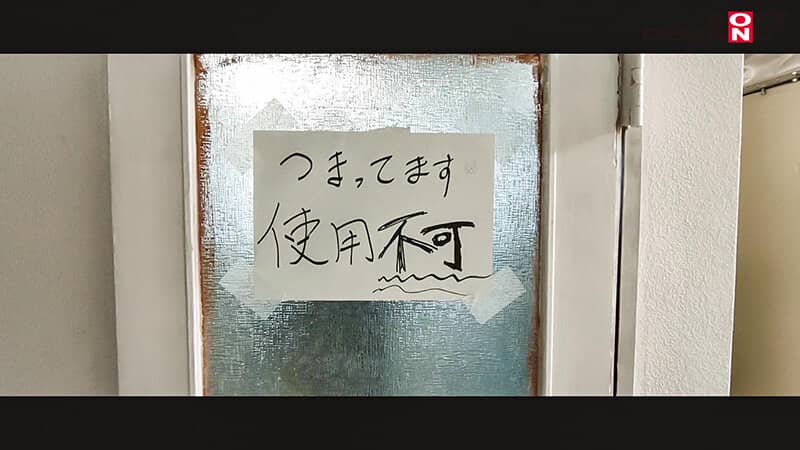 ON
つまってます
使用不可